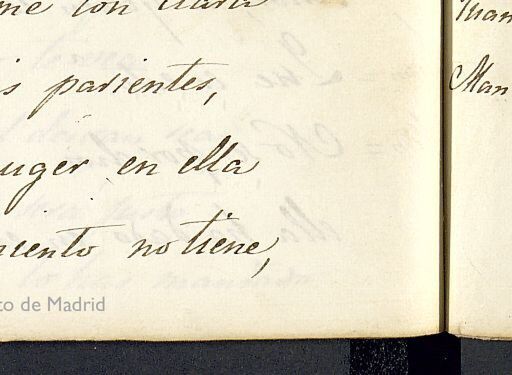 me con clara
s parientes,
uger en ella
miento no tiene,
to de Madrid
Juan
Man